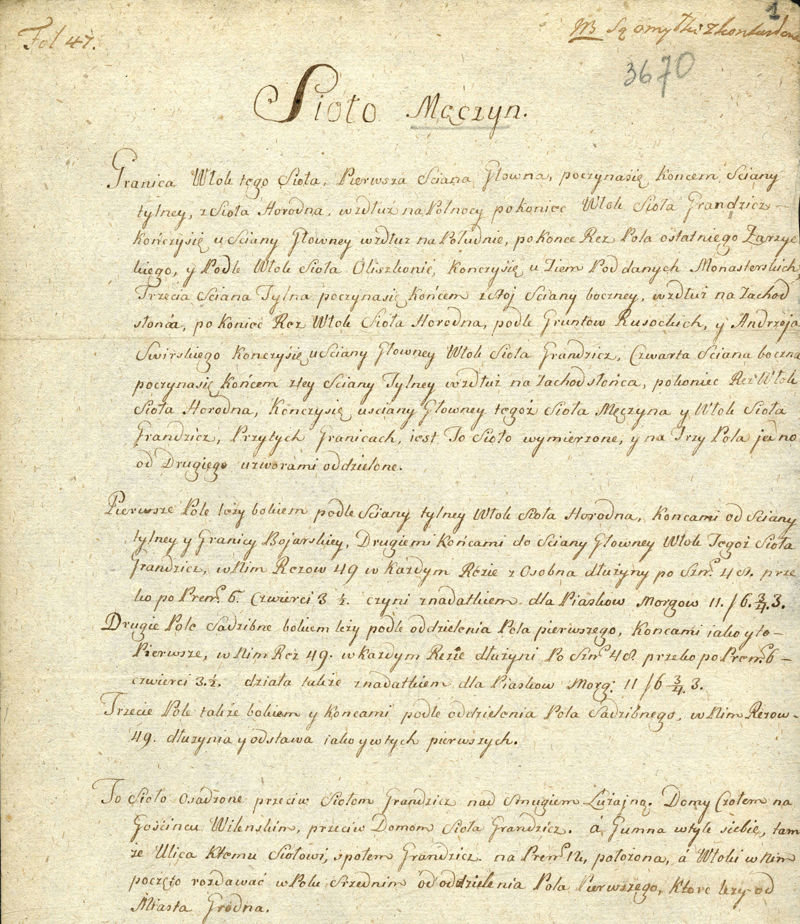 1
Fol 47.
NB Są omyłki z
3670
Sioło Męczyn.
Granica Włok tego Sioła, Pierwsza Sciana Głowna, poczynasię Koncem Sciany
tylney, z Sioła Horodna, wzdłuż na Połnocy po koniec Włok Sioła Grandzicz –
kończysię u Sciany Głowney wzdłuż na Południe, po Konce Rez Pola ostatniego Zarzyc
kiego, y Podle Włok Sioła Oliszkonic, kończysię u Ziem Poddanych Monasterskich
Trzecia Sciana Tylna poczynasię końcem z Stoj Sciany boczney, wzdłuż na Zachod
słońca, po Koniec Rez Włok Sioła Horodna, podle Gruntow Rusockich, y Andrzeja
Swirskiego Konczysię u Sciany Głowney Włok Sioła Grandzicz, Czwarta Sciana boczna
poczynasię Końcem z tey Sciany Tylney wzdłuż na Zachod słońca, pokoniec Rez Włok
Sioła Horodna, Kończysię u sciany Głowney tegoż Sioła Męczyna y Włok Sioła
Grandzicz, Przytych Granicach, iest To Sioło wymierzone, y na Trzy Pola jedno
od Drugiego uzworami oddzielone.
Pierwsze Pole leży bokiem podle Sciany tylney Włok Sioła Horodna, Koncami od Sciany
tylney y Granicy Bojarskiey, Drugiemi Końcami do Sciany Głowney Włok Tegoż Sioła
Grandzicz, w Nim Rezow 49 w Każdym Rezie z Osobna dłużyny po Szn. 48. prze
ko po Prem. 6. Czwierci 3 ½. czyni z nadatkiem dla Piaskow Morgow 11. /6. ¾. 3.
Drugie Pole Sadzibne bokiem leży podle oddzielenia Pola pierwszego, Koncami jako y to
Pierwsze, w Nim Rez 49. w Każdym Rezie dłużyni Po Szn. 48 przeko po Prem. 6 –
czwierci 3.½. działa także z nadatkiem dla Piaskow Morg: 11 /6 ¾ 3.
Trzecie Pole także bokiem y Koncami podle oddzielenia Pola Sadzibnego, w Nim Rezow –
49. dłużynia y odstawa jako y w tych pierwszych.
To Sioło Osadzone przeciw Siołom Grandzicz nad Smugiem Łużajną. Domy Czołem na
Gościncu Wilenskim, przeciw Domom Sioła Grandzicz. á Gumna w tyle siebie, tam
że Ulica Ktemu Siołowi, społem Grandzicz na Prem. 12, położona, á Włoki w Nim
poczęto rozdawać w Polu Srzednim od oddzielenia Pola Pierwszego, ktore leży od
Miasta Grodna.